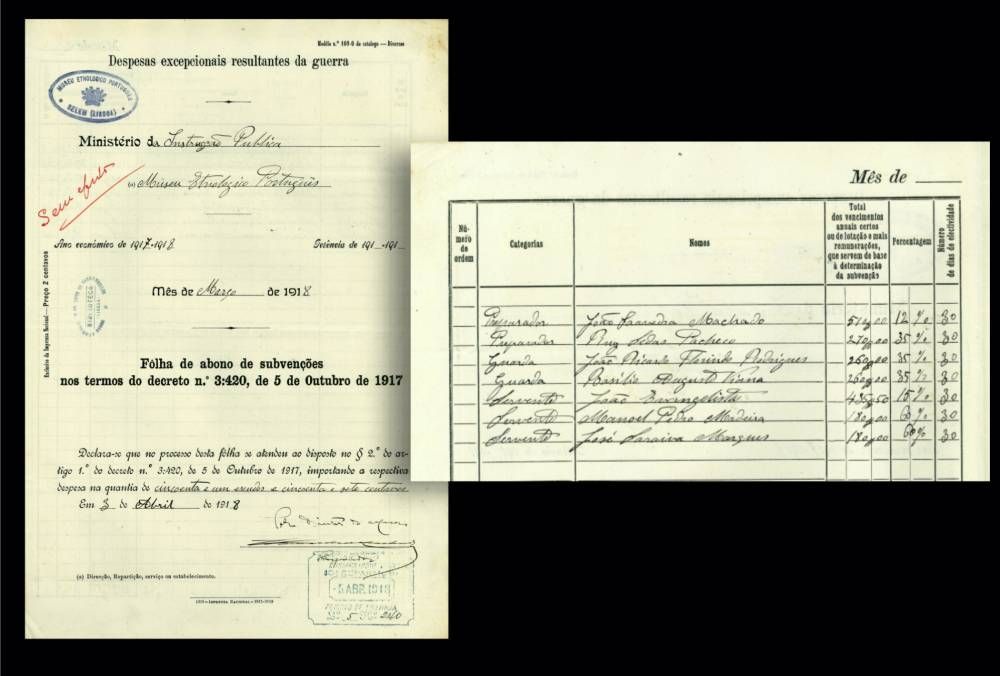 Modêlo n.º 109-D do catálogo — Diversos
Despesas excepcionais resultantes da guerra
MUSEU ETHNOLOGICO PORTUGUÊS
BELEM (LISBOA)
Ministério da Instrução Publica
Sem efeito
(a) Museu Etnologico Português
Ano económico de 1917-1918 Gerência de 191 -191
BIBLIOTECA
Mês de Março de 1918
Exclusivo da Imprensa Nacional — Preço 2 centavos
Fôlha de abono de subvenções
nos termos do decreto n.º 3:420, de 5 de Outubro de 1917
Declara-se que no processo desta fôlha se atendeu ao disposto no § 2.º do ar-
tigo 1.º do decreto n.º 3:420, de 5 de Outubro de 1917, importando a respectiva
despesa na quantia de cincoenta e um escudos e cincoenta e sete centavos
Em 3 de Abril de 1918
(a) Direcção, Repartição, serviço ou estabelecimento.
-5 ABR. 1918
IMPRENSA NACIONAL
Mês de
Nú-
mero
de
ordem
Categorias
Nomes
Total
dos vencimentos
anuais certos
ou de lotação e mais
remunerações,
que servem de base
à determinação
da subvenção
Percentagem
Número
de dias de efectividade
Preparador João Saavedra Machado 12 % 30
Preparador Ruy Pacheco 270,00 35 % 30
Guarda João Ricardo Florindo Rodrigues 260,00 35 % 30
Guarda Basilio Augusto 260,00 35 % 30
Servente João Evangelista 15 % 30
Servente Manoel Pedro Madeira 180,00 60 % 30
Servente José Saraiva Marques 180,00 60 % 30